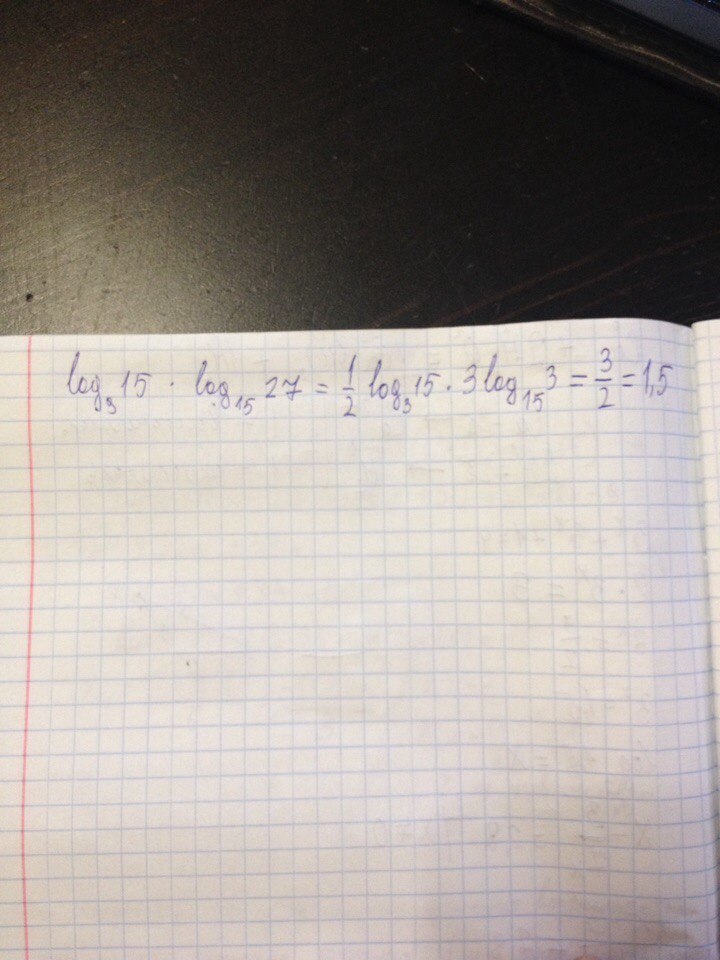 log₉15 · log₁₅27 = 1/2 log₃15 · 3log₁₅3 = 3/2 = 1,5